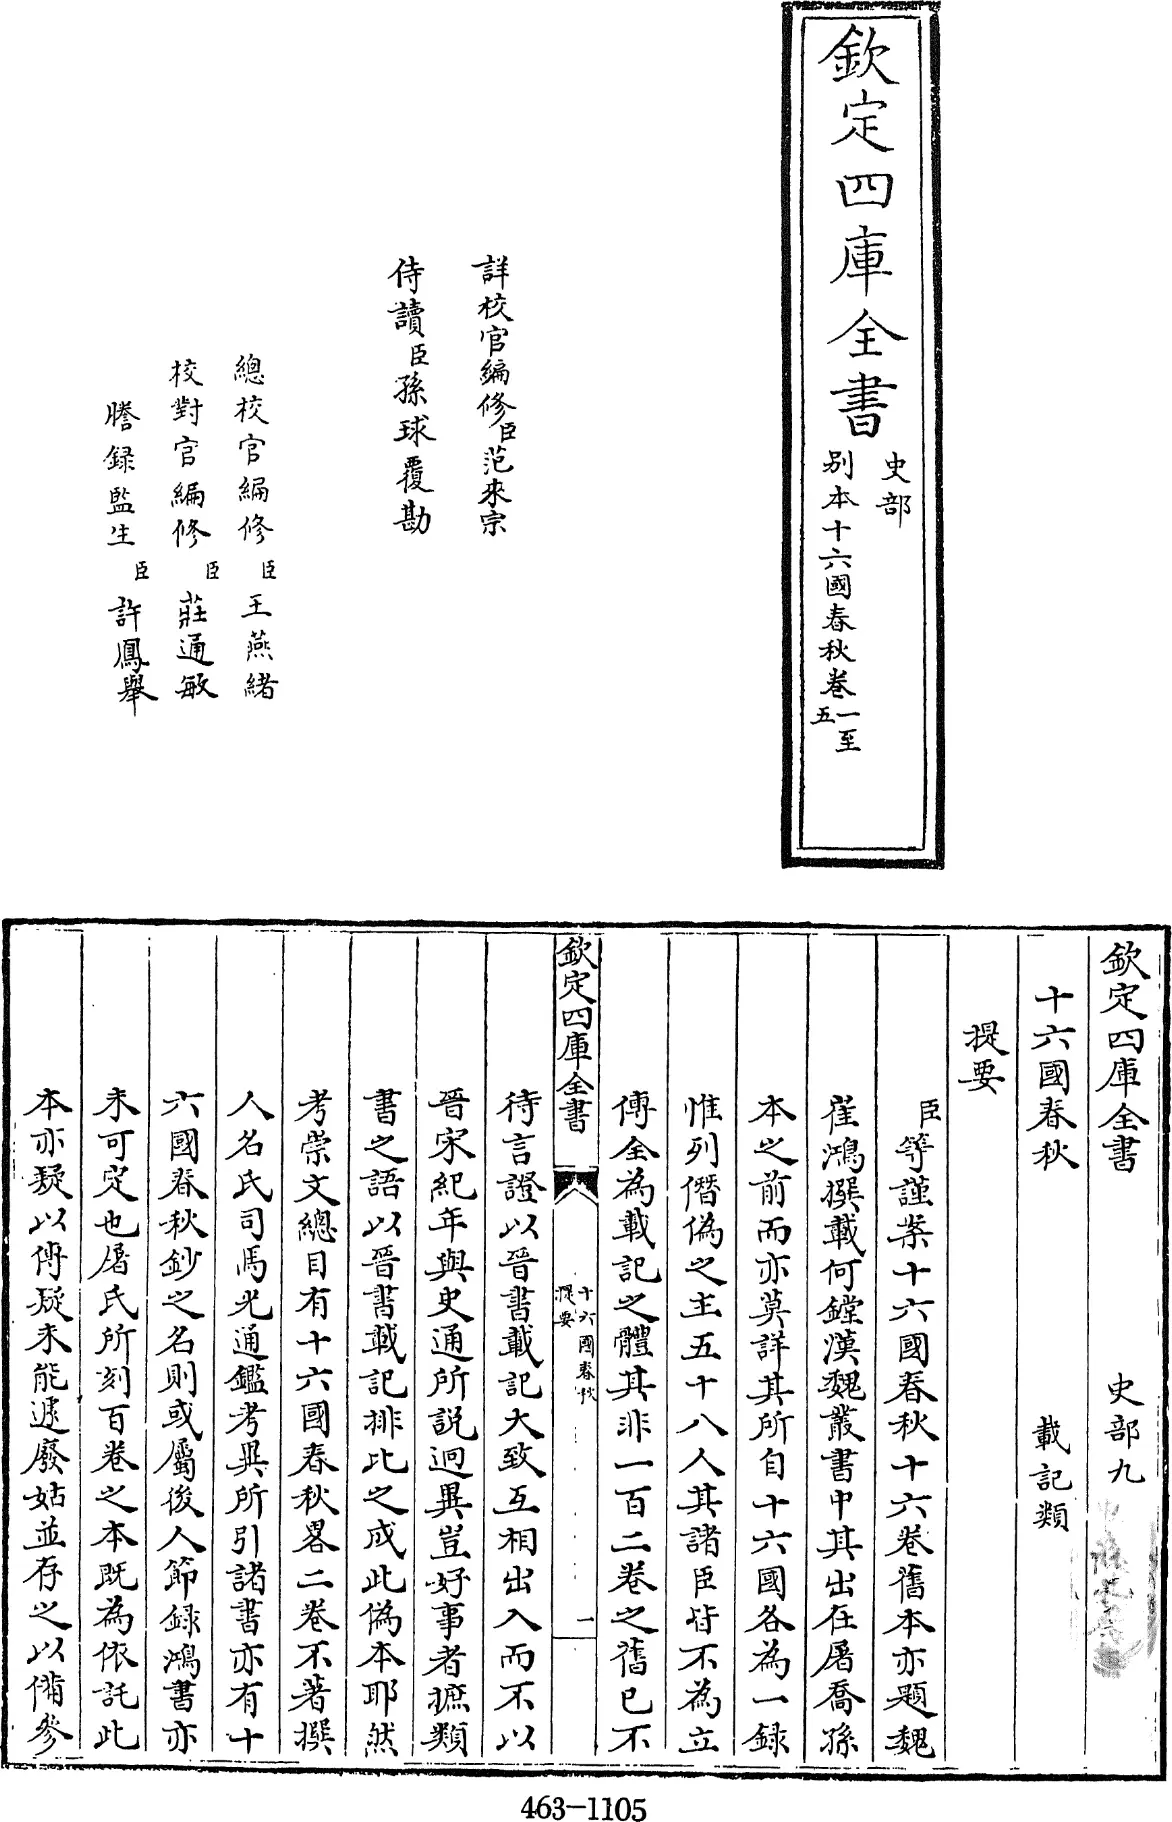 欽定四庫全書
史部
别本十六國春秋卷一至五
詳校官編修臣范來宗
侍讀臣孫球覆勘
總校官編修臣王燕緒
校對官編修臣莊通敏
謄録監生臣許鳳舉
欽定四庫全書
史部九
十六國春秋
載記類
提要
臣等謹案十六國春秋十六卷舊本亦題魏
崔鴻撰載何鏜漢魏叢書中其出在屠喬孫
本之前而亦莫詳其所自十六國各為一録
惟列僭偽之主五十八人其諸臣皆不為立
傳全為載記之體其非一百二卷之舊已不
欽定四庫全書
十六國春秋
提要
一
待言證以晉書載記大致互相出入而不以
晉宋紀年與史通所說迥異豈好事者摭類
書之語以晉書載記排比之成此偽本耶然
考崇文總目有十六國春秋畧二卷不著撰
人名氏司馬光通鑑考異所引諸書亦有十
六國春秋鈔之名則或屬後人節録鴻書亦
未可定也屠氏所刻百卷之本既為依託此
本亦疑以傳疑未能遽廢姑並存之以備參
463-1105